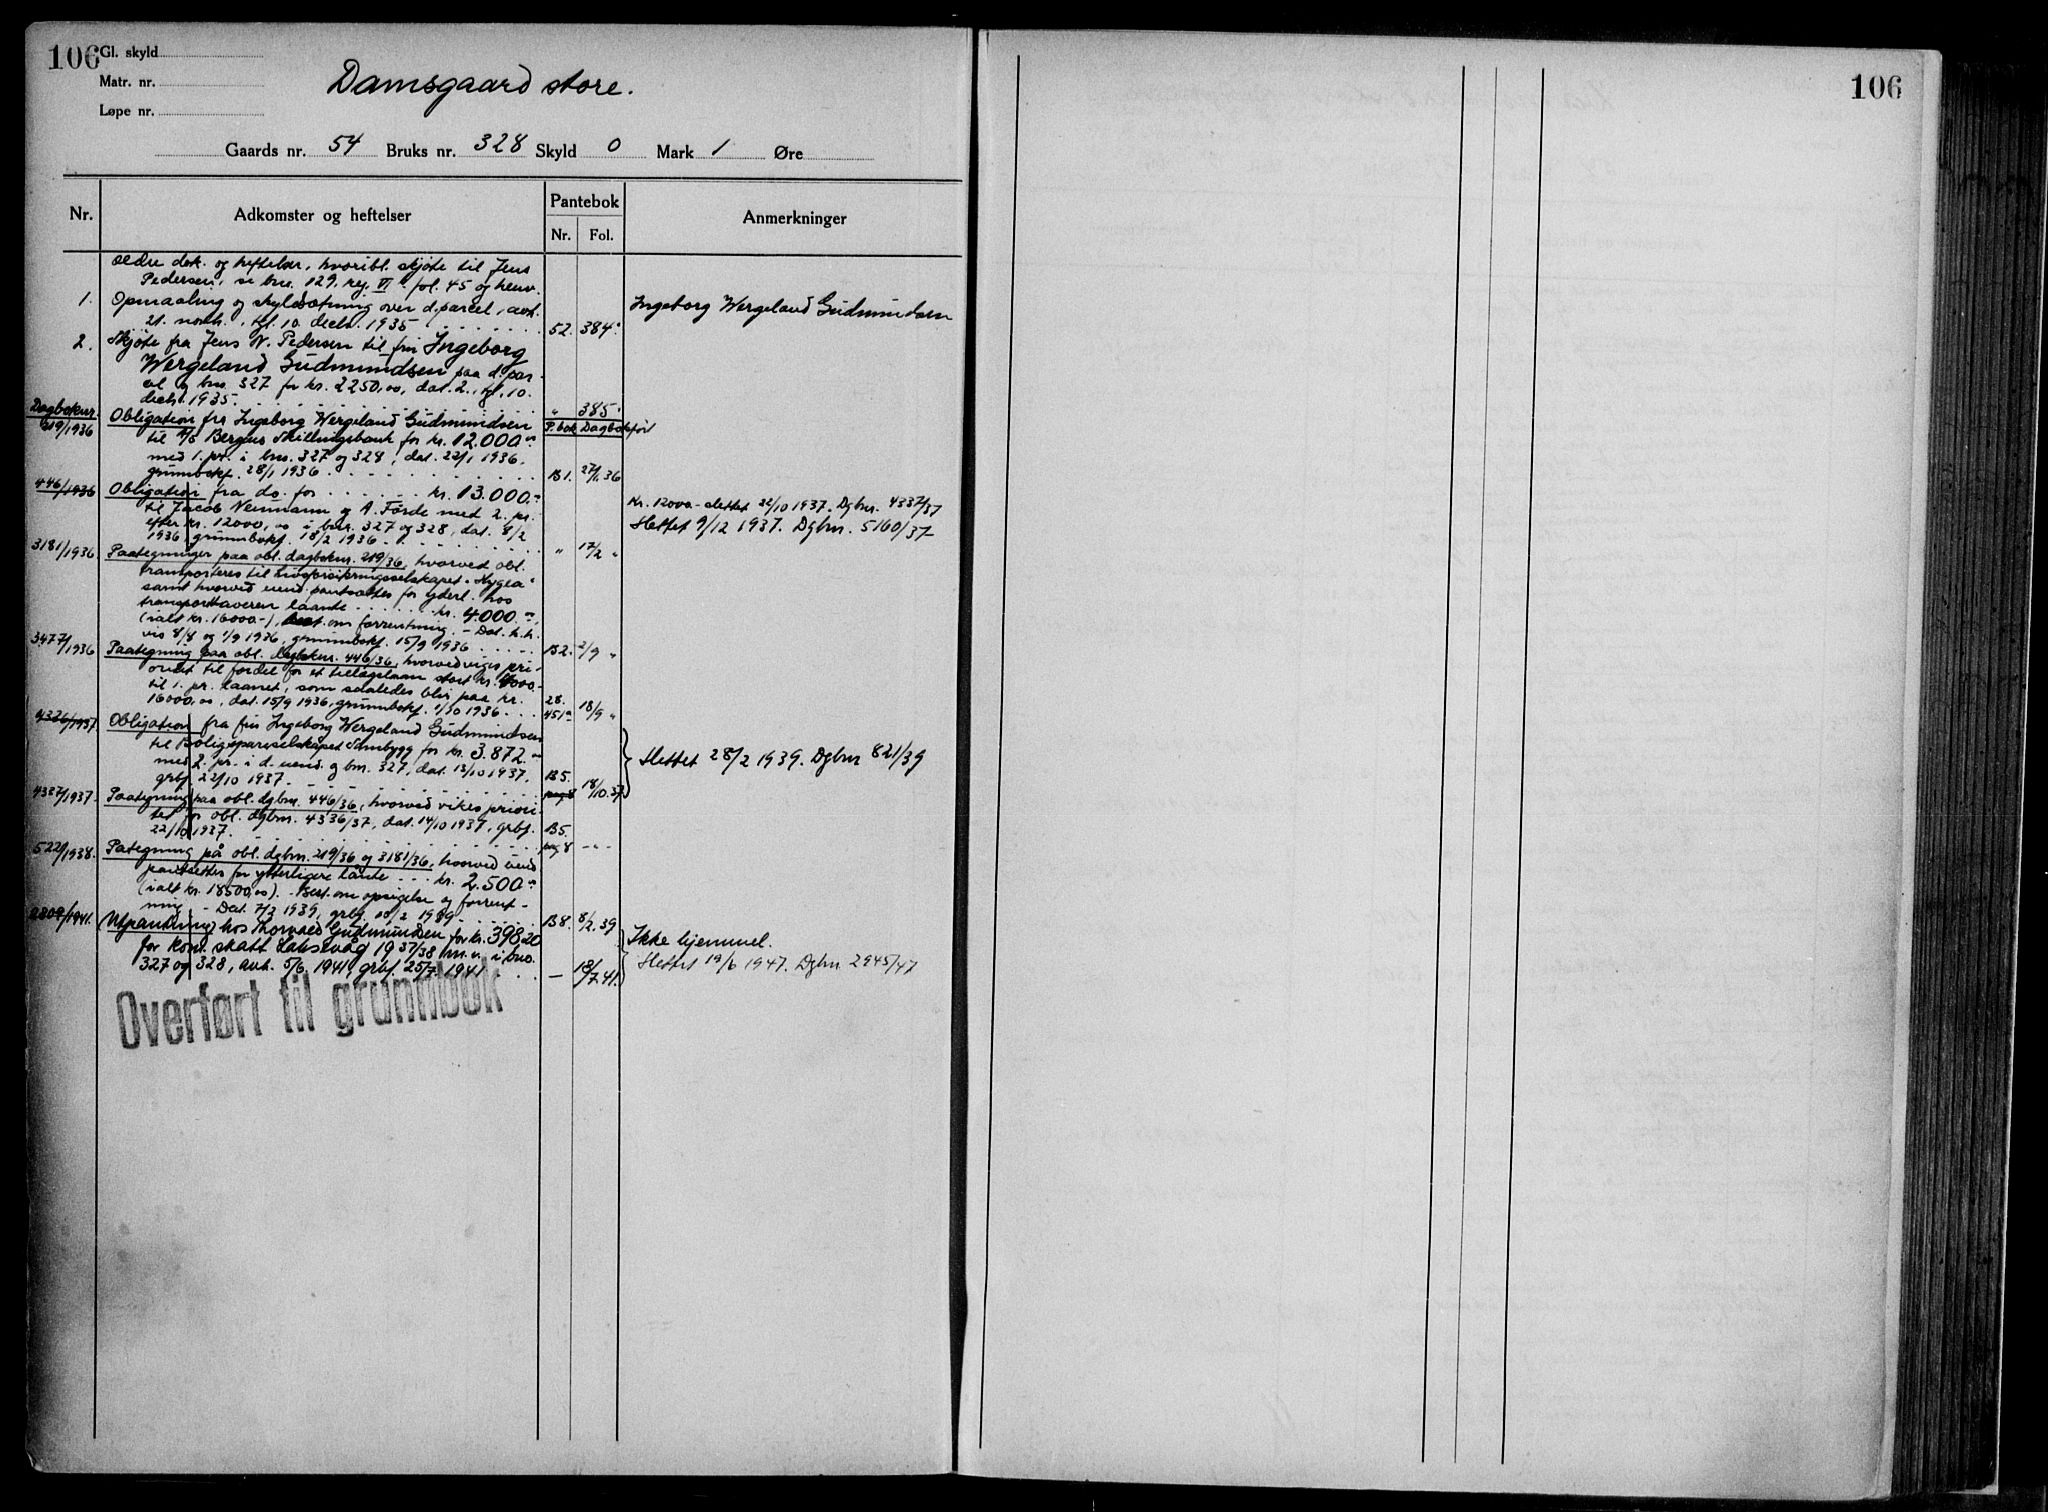 106
Gl. skyld
Matr. nr.
Løpe nr.
Damsgaard store.
Gaards nr. 54 Bruks nr. 328 Skyld 0 Mark 1 Øre
Nr.
Adkomster og heftelser
Pantebok
Nr. Fol.
Anmerkninger
Ældre dok. og heftelser, hvoribl. skjøte til Jens
Pedersen, se bnr. 129, reg. VI fol. 45 og henv.
1. Opmaaling og skyldsætning over d. parcel, avh.
21. novb., tgl. 10. decbr. 1935 52. 384.
Ingeborg Wergeland Gudmundsen
2. Skjøte fra Jens N. Pedersen til fru Ingeborg
Wergeland Gudmundsen paa d. par-
cel og bnr. 327 for kr. 2250,00, dat. 2., tgl. 10.
decbr. 1935. " 385.
Dagboknr.
219/1936 Obligation fra Ingeborg Wergeland Gudmundsen P. bok Dagbokført
til A/S Bergens Skillingsbank for kr. 12.000.-
med 1. pr. i bnr. 327 og 328, dat. 22/1 1936,
grunnbokf. 28/1 1936 B1. 27/1.36
446/1936 Obligation fra do. for kr. 13.000.-
til Jacob Neumann og A. Förde med 2. pr.
efter kr. 12000,00 i bnr. 327 og 328, dat. 8/2
1936, grunnbokf. 18/2 1936 " 17/2 "
Kr. 12000.- slettet 22/10 1937. Dgbnr. 4337/37
Slettet 9/12 1937. Dgbnr. 5160/37
3181/1936 Paategninger paa obl. dagboknr. 219/36, hvorved obl.
transporteres til Livsforsikringsselskapet "Hygea"
samt hvorved eiend. pantsættes for yderl. hos
transporthaveren laante kr. 4000.-
(ialt kr. 16000.-), best. om forrentning. - Dat. h.h.
vis 8/8 og 1/9 1936, grunnbokf. 15/9 1936 B2. 2/9 "
3477/1936 Paategning paa obl. dagboknr. 446/36, hvorved viges pri-
oritet til fordel for et tillægslaan stort kr. 4000.-
til 1. pr. laanet, som saaledes blir paa kr.
16000,00, dat. 15/9 1936, grunnbokf. 1/10 1936 28. 451 18/9 "
4336/1937 Obligation fra fru Ingeborg Wergeland Gudmundsen
til Boligspareselskapet Sambygg for kr. 3.872.-
med 2. pr. i d. eiend. og bnr. 327, dat. 13/10 1937,
grbf. 22/10 1937. B5. pag 8 18/10.37
Slettet 28/2 1939. Dgbnr 821/39
4337/1937. Paategning paa obl. dgbnr. 446/36, hvorved vikes priori-
tet for obl. dgbnr. 4336/37, dat. 14/10 1937, grbf.
22/10 1937. B5. pag 8 - " -
522/1938. Pategning på obl. dgbnr. 219/36 og 3181/36, hvorved eiend.
pantsettes for ytterligere lånte kr. 2.500.-
(ialt kr. 18500,00). - Best. om opsigelse og forrent-
ning - Dat. 7/2 1939, grbf. 10/2 1939 B8. 8/2.39
2809/1941. (Utpantning) hos Thorvald Gudmundsen for kr. 398,20
for kom. skatt Laksevåg 1937/38 m.v. i bnr.
327 og 328, avh. 5/6 1941, grbf. 25/7 1941 - 18/7.41.
Ikke hjemmel.
Slettet 19/6 1947. Dgbnr 2945/47
Overført til grunnbok
106